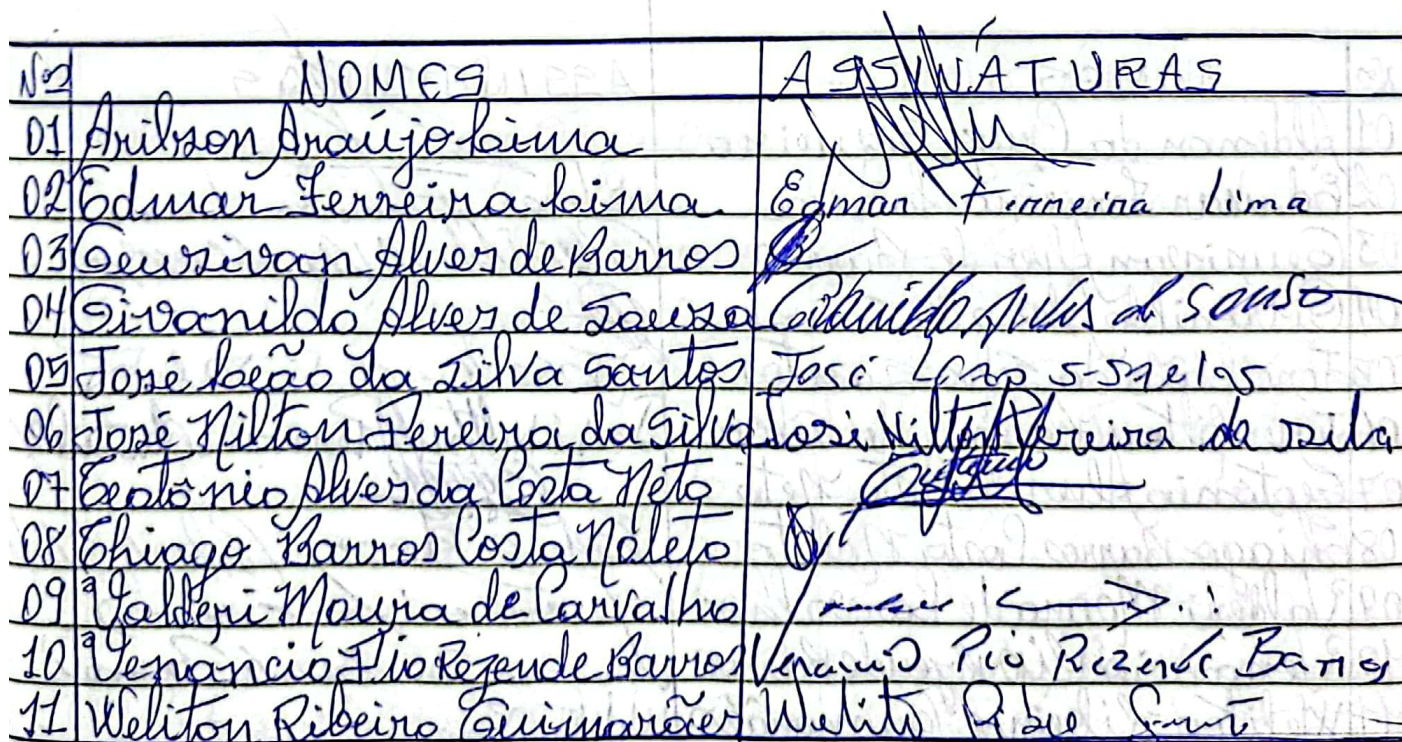 Nos NOMES ASSINATURAS
01 Arilson Araújo Lima
02 Edmar Ferreira Lima Edmar Ferreira Lima
03 Geurivan Alves de Barros
04 Givanildo Alves de Souza Givanildo Alves de Souso
05 José Leão da Silva Santos José Leão
06 José Nilton Pereira da Silva José Nilton Pereira da silva
07 Teotônio Alves da Costa Neto
08 Thiago Barros Costa Noleto
09 Valderi Moura de Carvalho
10 Venancio Pio Rezende Barros Venancio Pio Rezende Barros
11 Weliton Ribeiro Guimarães